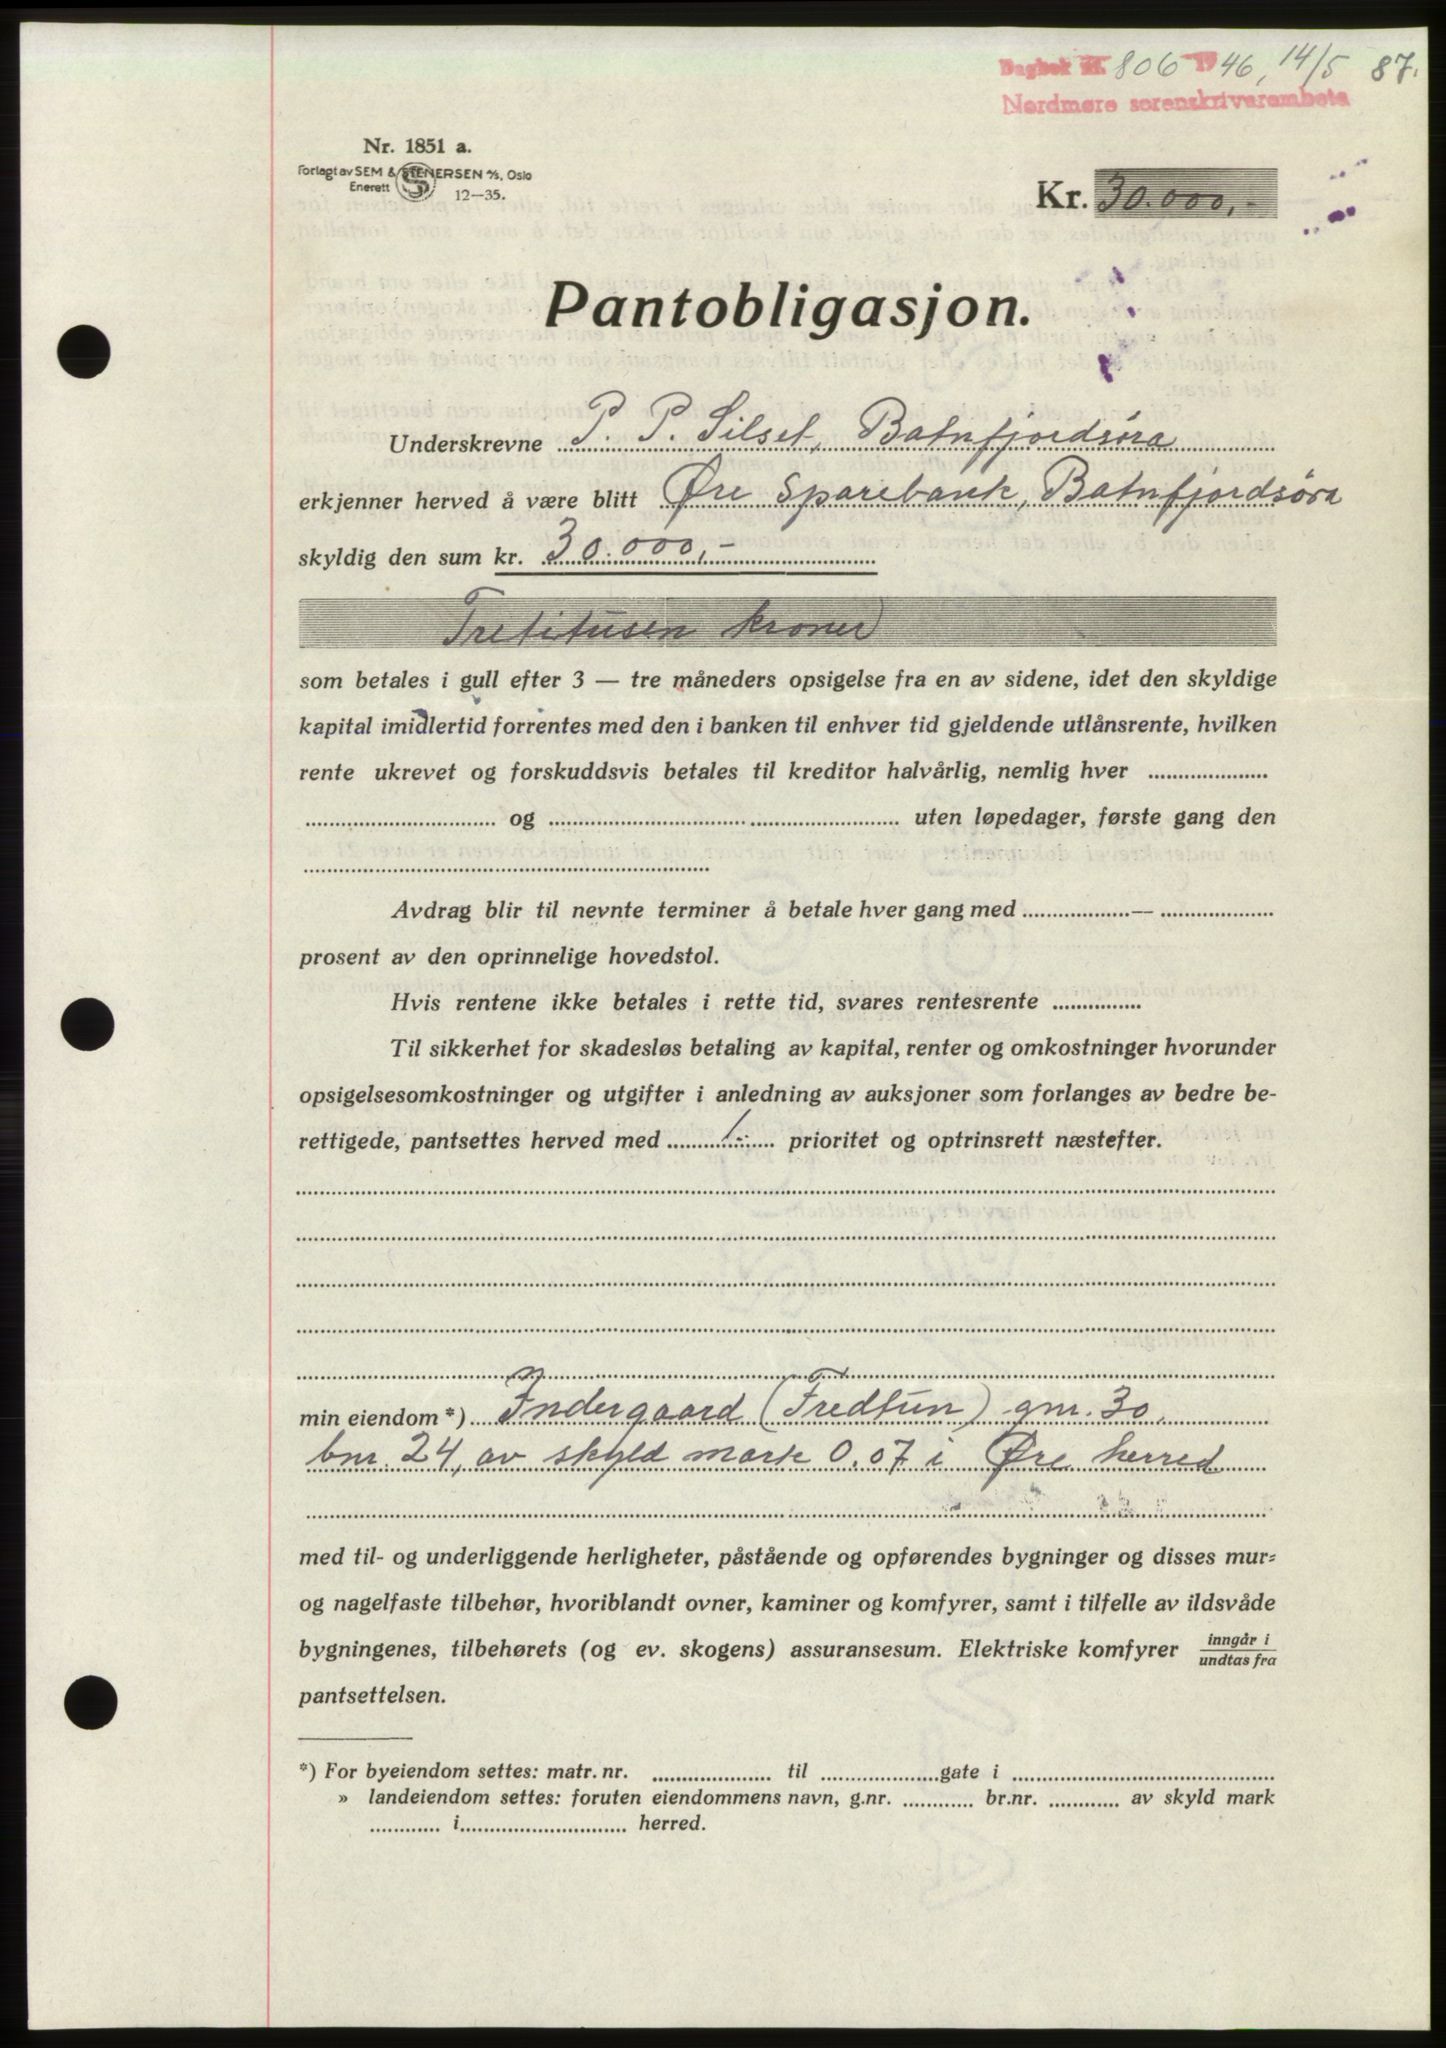 Dagbok nr. 806 1946, 14/5 87.
Nordmøre sorenskrivarembete
Nr. 1851 a.
Forlagt av SEM & STENERSEN A/S, Oslo
Enerett 12—35.
Kr. 30.000,-
Pantobligasjon.
Underskrevne P. P. Silset, Batnfjordsøra
erkjenner herved å være blitt Øre Sparebank, Batnfjordsøra
skyldig den sum kr. 30.000,-
Tretitusen kroner
som betales i gull efter 3 — tre måneders opsigelse fra en av sidene, idet den skyldige
kapital imidlertid forrentes med den i banken til enhver tid gjeldende utlånsrente, hvilken
rente ukrevet og forskuddsvis betales til kreditor halvårlig, nemlig hver ....................
................................ og ............................................................ uten løpedager, første gang den
......................................................................
Avdrag blir til nevnte terminer å betale hver gang med ..................—...................
prosent av den oprinnelige hovedstol.
Hvis rentene ikke betales i rette tid, svares rentesrente ...............
Til sikkerhet for skadesløs betaling av kapital, renter og omkostninger hvorunder
opsigelsesomkostninger og utgifter i anledning av auksjoner som forlanges av bedre be-
rettigede, pantsettes herved med 1. prioritet og optrinsrett næstefter.
min eiendom*) Indergaard (Fredtun) gnr. 30,
bnr. 24, av skyld mark 0.07 i Øre herred
med til- og underliggende herligheter, påstående og opførendes bygninger og disses mur-
og nagelfaste tilbehør, hvoriblandt ovner, kaminer og komfyrer, samt i tilfelle av ildsvåde
bygningenes, tilbehørets (og ev. skogens) assuransesum. Elektriske komfyrer inngår i / undtas fra
pantsettelsen.
*) For byeiendom settes: matr. nr. .................... til ....................gate i ............................................
» landeiendom settes: foruten eiendommens navn, g.nr. ............ br.nr. ............ av skyld mark
............ i............................ herred.